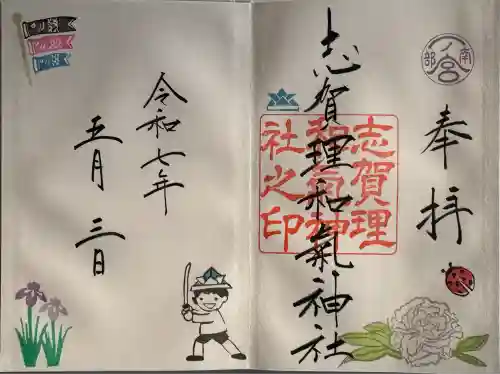 奉拝
一ノ宮
南部
志賀理和氣神社
志賀理
和氣神
社之印
令和七年
五月三日